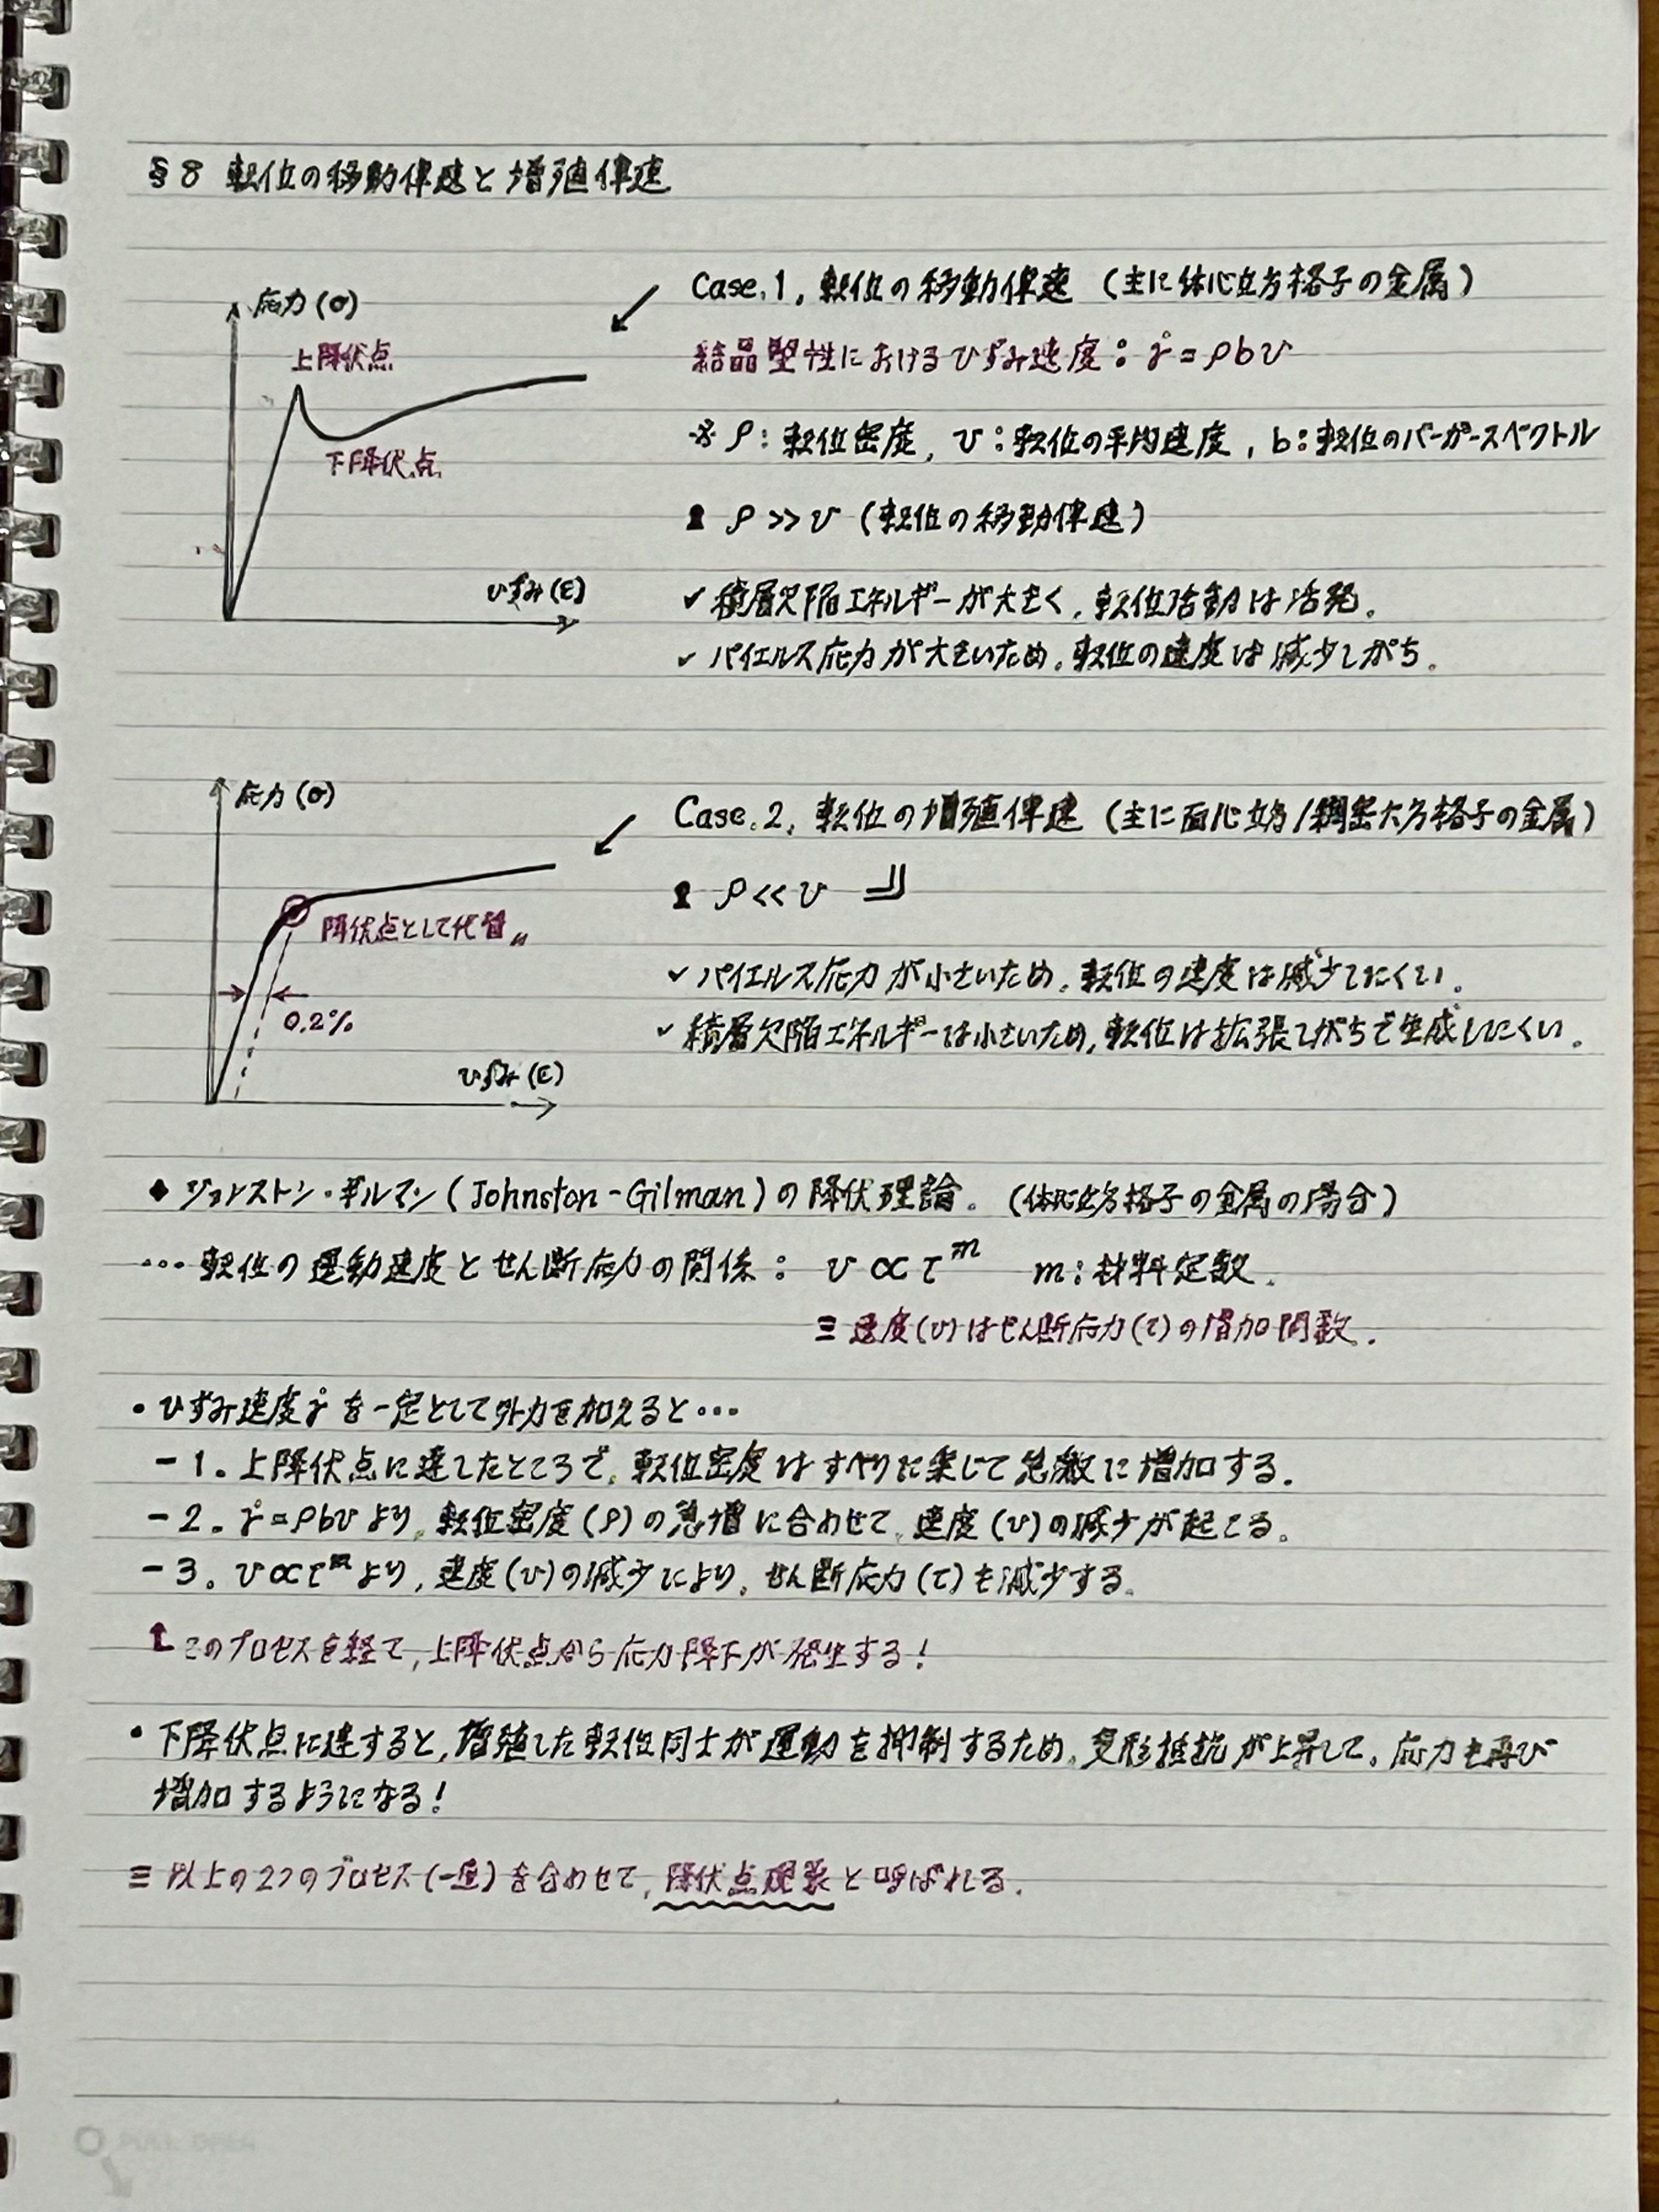 §8 転位の移動律速と増殖律速
応力(σ)
上降伏点
下降伏点
ひずみ(ε)
Case.1. 転位の移動律速 (主に体心立方格子の金属)
結晶塑性におけるひずみ速度: γ̇=ρbv
※ρ:転位密度, v:転位の平均速度, b:転位のバーガースベクトル
ρ>>v (転位の移動律速)
✓積層欠陥エネルギーが大きく、転位活動は活発。
✓パイエルス応力が大きいため、転位の速度は減少しがち。
応力(σ)
降伏点として代替〃
0.2%
ひずみ(ε)
Case.2. 転位の増殖律速 (主に面心立方/稠密六方格子の金属)
ρ<<v
✓パイエルス応力が小さいため、転位の速度は減少しにくい。
✓積層欠陥エネルギーは小さいため、転位は拡張しがちで生成しにくい。
◆ジョンストン・ギルマン(Johnston-Gilman)の降伏理論。(体心立方格子の金属の場合)
…転位の運動速度とせん断応力の関係: v∝τ^m m:材料定数.
≡速度(v)はせん断応力(τ)の増加関数.
・ひずみ速度γ̇を一定として外力を加えると…
-1. 上降伏点に達したところで、転位密度はすべりに乗じて急激に増加する.
-2. γ̇=ρbvより、転位密度(ρ)の急増に合わせて、速度(v)の減少が起こる。
-3. v∝τ^mより, 速度(v)の減少により、せん断応力(τ)も減少する。
↑このプロセスを経て,上降伏点から応力降下が発生する!
・下降伏点に達すると,増殖した転位同士が運動を抑制するため、変形抵抗が上昇して、応力も再び
増加するようになる!
≡以上の2つのプロセス(一連)を合わせて,降伏点現象と呼ばれる.